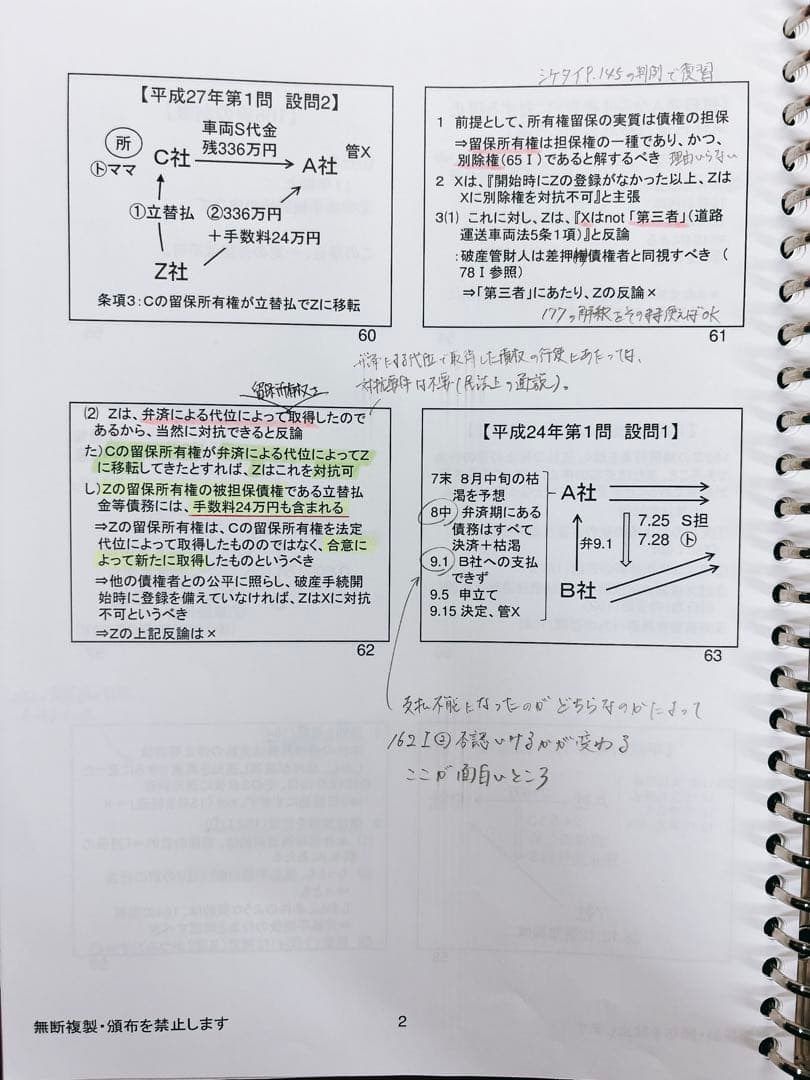 シケタイP.145の判例で復習
【平成27年第1問 設問2】
所
トママ
C社
車両S代金
残336万円
A社
管X
①立替払
②336万円
+手数料24万円
Z社
条項3:Cの留保所有権が立替払でZに移転
60
1 前提として、所有権留保の実質は債権の担保
⇒留保所有権は担保権の一種であり、かつ、
別除権(65Ⅰ)であると解するべき 理由いらない
2 Xは、『開始時にZの登録がなかった以上、Zは
Xに別除権を対抗不可』と主張
3(1) これに対し、Zは、『Xはnot「第三者」(道路
運送車両法5条1項)』と反論
:破産管財人は差押債権者と同視すべき(
78Ⅰ参照)
⇒「第三者」にあたり、Zの反論×
177の解釈をその時使えばOK
61
弁済による代位で取得した債権の行使にあたっては、
対抗要件は不要(民法上の通説)。
留保所有権を
(2) Zは、弁済による代位によって取得したので
あるから、当然に対抗できると反論
た)Cの留保所有権が弁済による代位によってZ
に移転してきたとすれば、Zはこれを対抗可
し)Zの留保所有権の被担保債権である立替払
金等債務には、手数料24万円も含まれる
⇒Zの留保所有権は、Cの留保所有権を法定
代位によって取得したもののではなく、合意に
よって新たに取得したものというべき
⇒他の債権者との公平に照らし、破産手続開
始時に登録を備えていなければ、ZはXに対抗
不可というべき
⇒Zの上記反論は×
62
【平成24年第1問 設問1】
7末 8月中旬の枯
渇を予想
8中 弁済期にある
債務はすべて
決済+枯渇
9.1 B社への支払
できず
9.5 申立て
9.15 決定、管X
A社
弁9.1
7.25 S担
7.28 ト
B社
63
支払不能になったのがどちらなのかによって
162Ⅰ②否認いけるかが変わる
ここが面白いところ
無断複製・頒布を禁止します
2